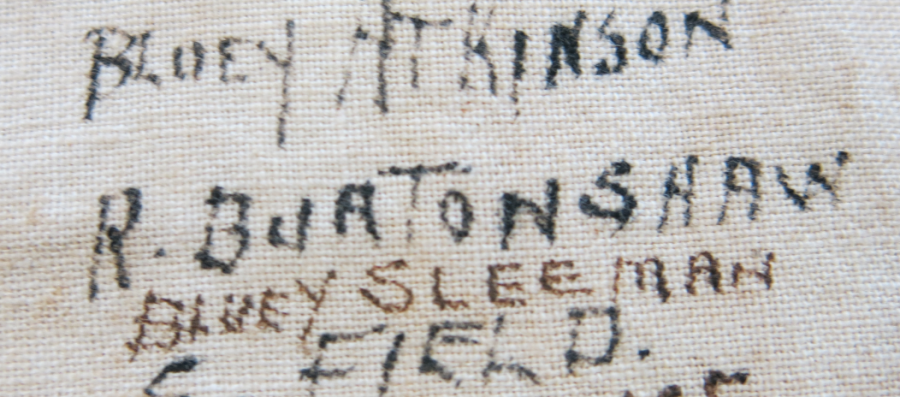 BLUEY ATKINSON
R. BURTONSHAW
BLUEY SLEEMAN
FIELD.